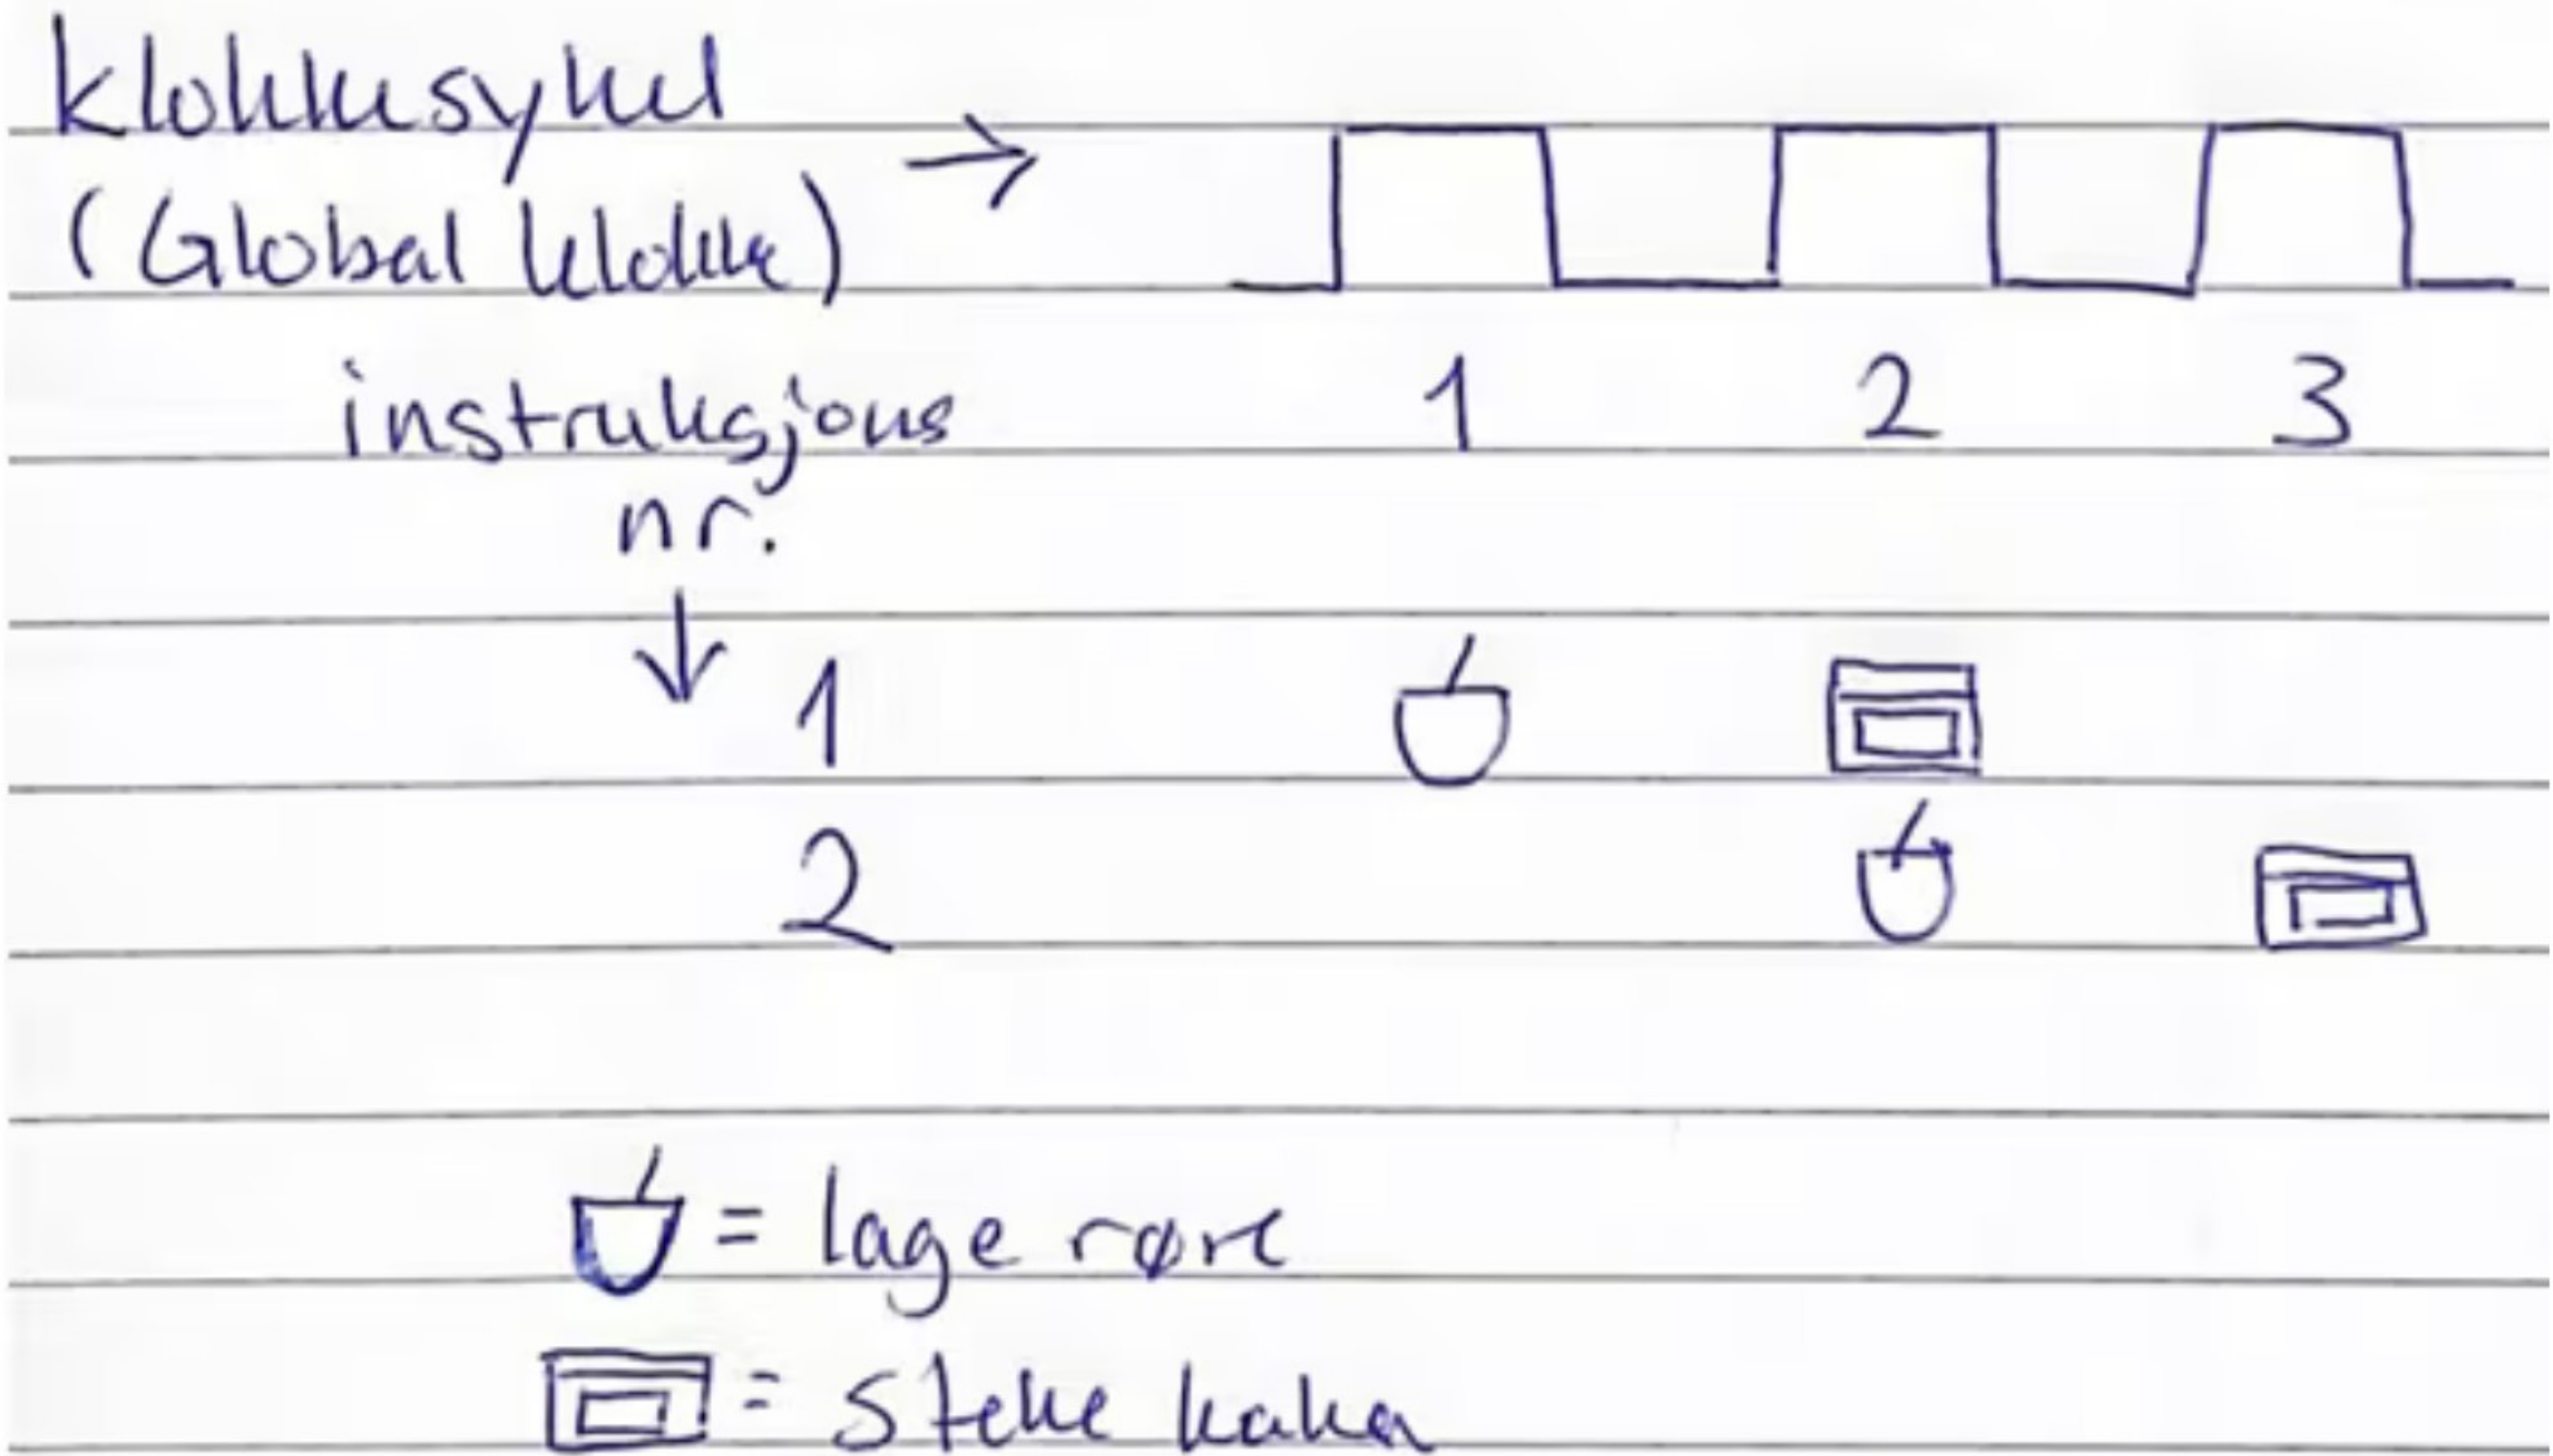 klokkesykel
(Global klokke)
1 2 3
instruksjons
nr.
1
2
= lage røre
= steke kaka